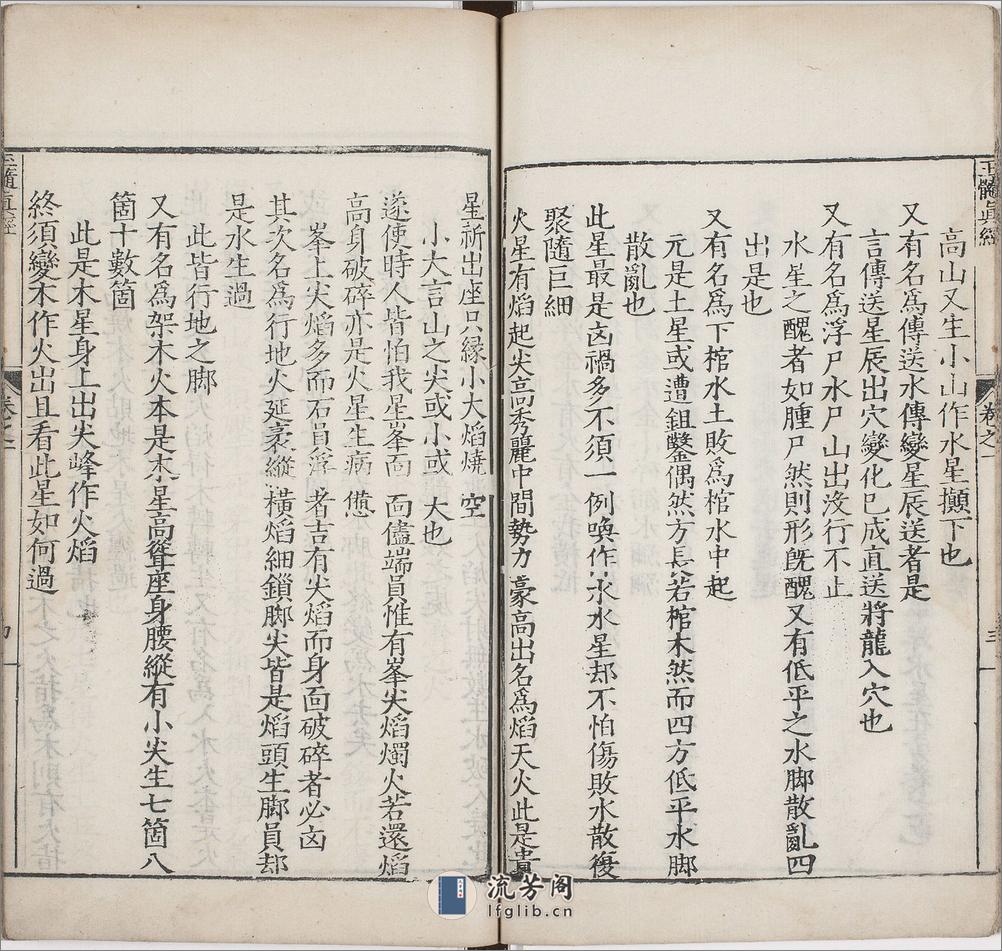 玉髓真經
卷之一
三
高山又生小山作水星攧下也
又有名爲傳送水傳變星辰送者是
言傳送星辰出穴變化巳成直送將龍入穴也
又有名爲浮尸水尸山出没行不止
水星之醜者如腫尸然則形旣醜又有低平之水脚散亂四
出是也
又有名爲下棺水土敗爲棺水中起
元是土星或遭鉏鑿偶然方長若棺木然而四方低平水脚
散亂也
此星最是凶禍多不須一例喚作水水星却不怕傷敗水散復
聚隨巨細
火星有焰起尖高秀麗中間勢力豪高出名爲焰天火此是貴
星祈出座只緣小大焰燒空
小大言山之尖或小或大也
遂使時人皆怕我星峯面面儘端員惟有峯尖焰燭火若還焰
高身破碎亦是火星生病憊
峯上尖焰多而石員淨者吉有尖焰而身面破碎者必凶
其次名爲行地火延袤縱橫焰細鎖脚尖皆是焰頭生脚員却
是水生過
此皆行地之脚
又有名爲架木火本是木星高聳座身腰縱有小尖生七箇八
箇十數箇
此是木星身上出尖峰作火焰
終須變木作火出且看此星如何過
玉髓真經
卷之一
流芳阁
lfglib.cn